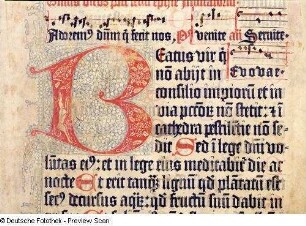 Adorem⁹ dūm q̄ fecit nos, Ps venite añ Servite
Beatus vir q̄
nō abijt in
Evovae.
consilio impiorū et in
via pccōr nō stetit: et ī
cathedra pestilētie nō se-
dit Sed ī lege dn̄i vo-
lūtas ei⁹: et in lege eius meditabit᷑ die ac
nocte Et erit tanq̄ lignū qd̄ plātatū est
secus decursus aq̄ꝝ: qd̄ fructū suū dabit in
© Deutsche Fotothek - Preview Scan